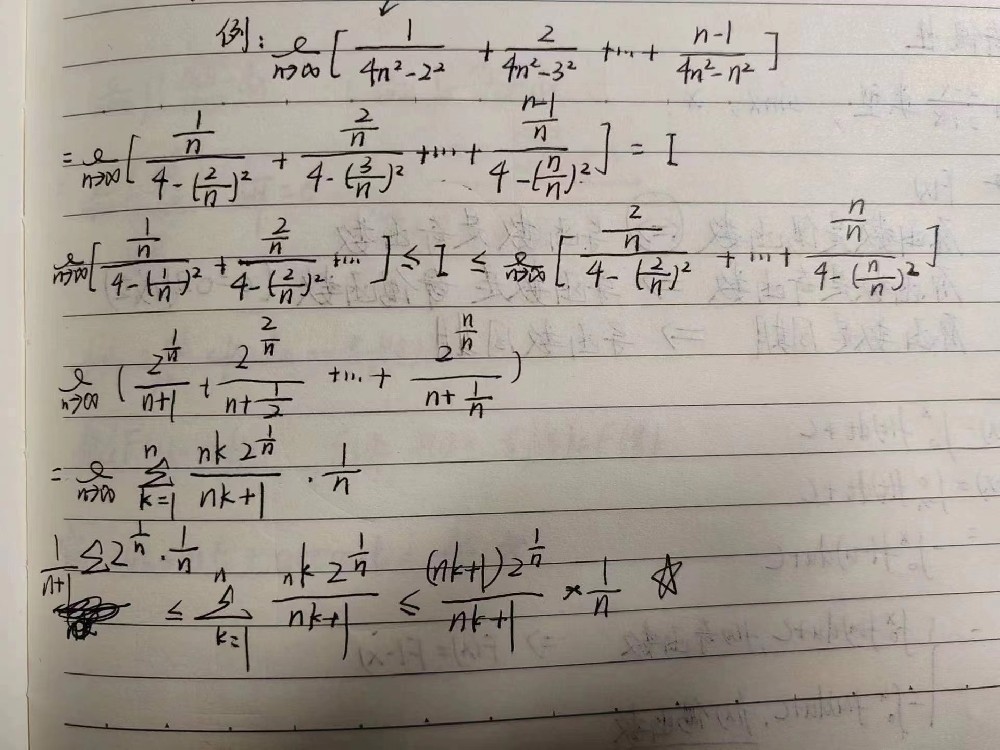 例: lim n→∞ [ 1/(4n²-2²) + 2/(4n²-3²) +…+ (n-1)/(4n²-n²) ]
= lim n→∞ [ (1/n)/(4-(2/n)²) + (2/n)/(4-(3/n)²) +…+ ((n-1)/n)/(4-(n/n)²) ] = I
lim n→∞ [ (1/n)/(4-(1/n)²) + (2/n)/(4-(2/n)²) … ] ≤ I ≤ lim n→∞ [ (2/n)/(4-(2/n)²) +…+ (n/n)/(4-(n/n)²) ]
lim n→∞ ( 2^(1/n)/(n+1) + 2^(2/n)/(n+1/2) +…+ 2^(n/n)/(n+1/n) )
= lim n→∞ Σ_{k=1}^{n} (nk 2^(1/n))/(nk+1) · 1/n
1/(n+1) Σ 2^(1/n) · 1/n ≤ Σ_{k=1}^{n} (nk 2^(1/n))/(nk+1) ≤ ((nk+1) 2^(1/n))/(nk+1) × 1/n ☆